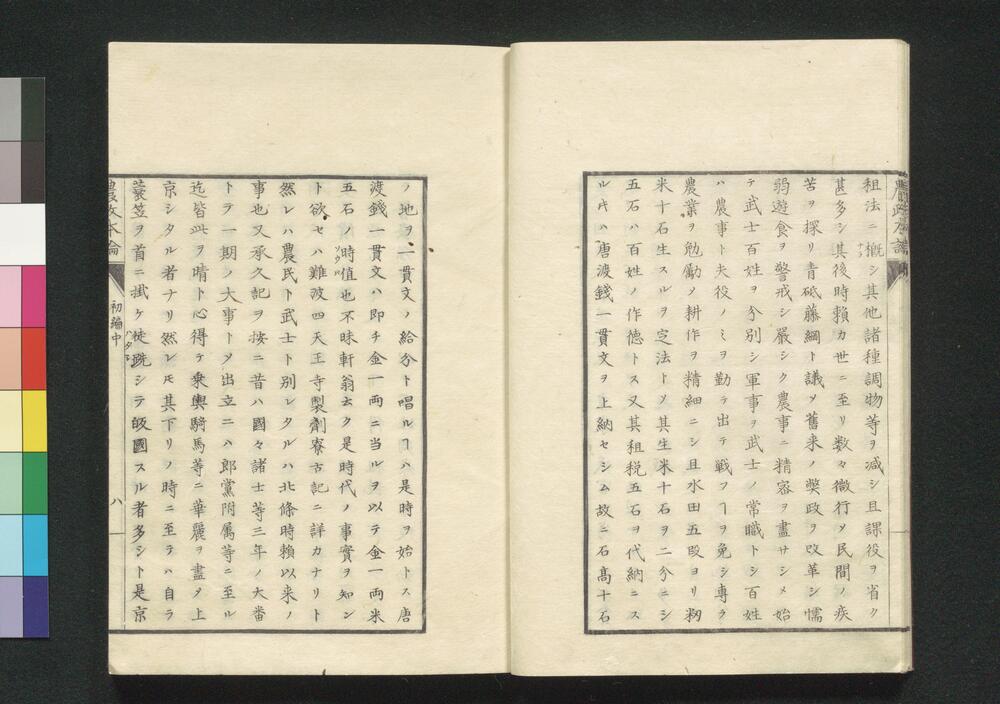 租法ニ概シ其他諸種調物等ヲ减シ且課役ヲ省ク
甚多シ其後時頼カ世ニ至リ数々微行〆民間ノ疾
苦ヲ探リ青砥藤綱ト議〆舊来ノ獘政ヲ改革シ懦
弱遊食ヲ警戒シ嚴シク農事ニ精密ヲ盡サシメ始
テ武士百姓ヲ分別シ軍事ヲ武士ノ常職トシ百姓
ハ農事ト夫役ノミヲ勤ラ出テ戦フヿヲ免シ專ラ
農業ヲ勉勵〆耕作ヲ精細ニシ且水田五段ヨリ籾
米十石生スルヲ定法ト〆其生米十石ヲ二分ニシ
五石ハ百姓ノ作德トス又其租税五石ヲ代納ニス
ルキハ唐渡錢一貫文ヲ上納セシム故ニ石高十石
ノ地ヲ一貫文ノ給分ト唱ルヿハ是時ヲ始トス唐
渡錢一貫文ハ即チ金一両ニ当ルヲ以テ金一両米
五石ノ時値也不昧軒翁云ク是時代ノ事實ヲ知ン
ト欲セハ難波四天王寺製劑寮古記ニ詳カナリト
然レハ農民ト武士ト別レタルハ北條時頼以来ノ
事也又承久記ヲ按ニ昔ハ國々諸士等三年ノ大番
トテ一期ノ大事ト〆出立ニハ郎黨附属等ニ至ル
迄皆此ヲ晴ト心得テ衆輿騎馬等ニ華麗ヲ盡〆上
京シタル者ナリ然レ𪜈其下リノ時ニ至テハ自ラ
蓑笠ヲ首ニ掛ケ徒跣シテ皈國スル者多シト是京
農政本論 初編中 八